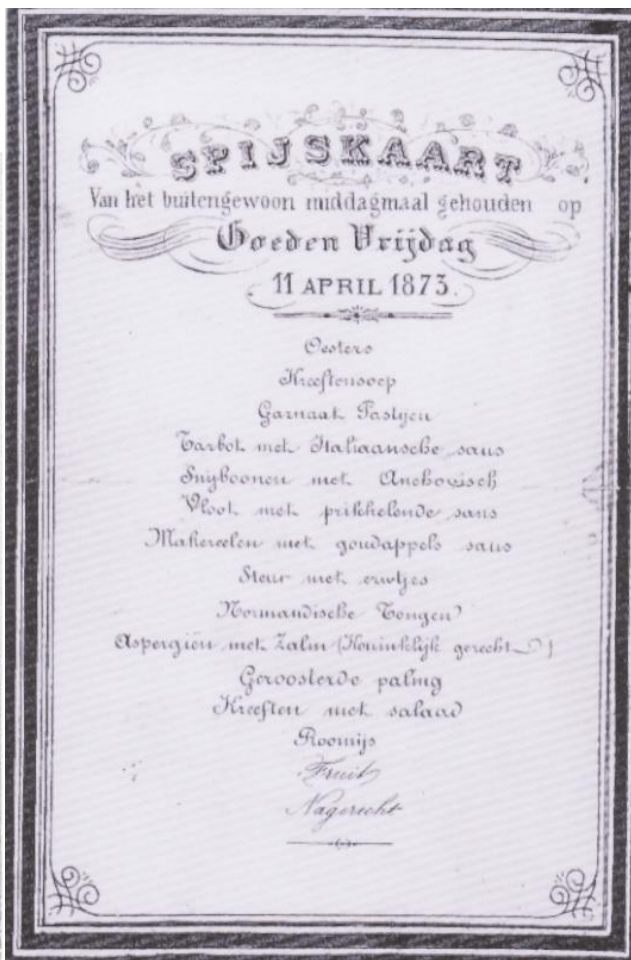 SPIJSKAART
Van het buitengewoon middagmaal gehouden op
Goeden Vrijdag
11 APRIL 1873.
Oesters
Kreeftensoep
Garnaat Pastyen
Tarbot met Italiaansche saus
Snyboonen met Anchovisch
Vloot met prikkelende saus
Makereelen met goudappels saus
Steur met erwtjes
Normandische Tongen
Aspergiën met Zalm (Koninklijk gerecht)
Geroosterde paling
Kreeften met salaad
Roomijs
Fruit
Nagerecht